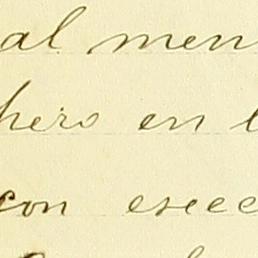 al men
hero en l
con esece